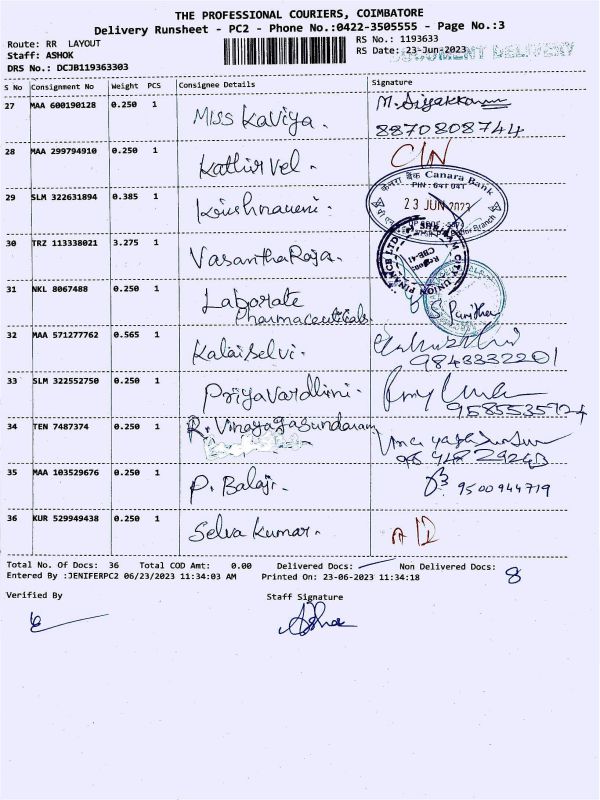 THE PROFESSIONAL COURIERS, COIMBATORE
Delivery Runsheet - PC2 - Phone No.:0422-3505555 - Page No.:3
Route: RR LAYOUT RS No.: 1193633
Staff: ASHOK RS Date: 23-Jun-2023
DOCUMENT DELIVERY
DRS No.: DCJB119363303
S No Consignment No Weight PCS Consignee Details Signature
27 MAA 600190128 0.250 1 Miss Kaviya.
8870808744
28 MAA 299794910 0.250 1 Kathirvel.
29 SLM 322631894 0.385 1 Krishnaveni.
केनरा बैंक Canara Bank
PIN : 641 041
23 JUN 2023
30 TRZ 113338021 3.275 1 VasanthaRaja.
SHRIRAM CITY UNION FINANCE LTD
31 NKL 8067488 0.250 1 Laborate
Pharmaceuticals.
32 MAA 571277762 0.565 1 Kalaiselvi.
9843332201
33 SLM 322552750 0.250 1 Priyavardhini.
34 TEN 7487374 0.250 1 R. Vinayagasundaram
35 MAA 103529676 0.250 1 P. Balaji. 9500944719
36 KUR 529949438 0.250 1 Selva kumar.
Total No. Of Docs: 36 Total COD Amt: 0.00 Delivered Docs: Non Delivered Docs: 8
Entered By :JENIFERPC2 06/23/2023 11:34:03 AM Printed On: 23-06-2023 11:34:18
Verified By Staff Signature